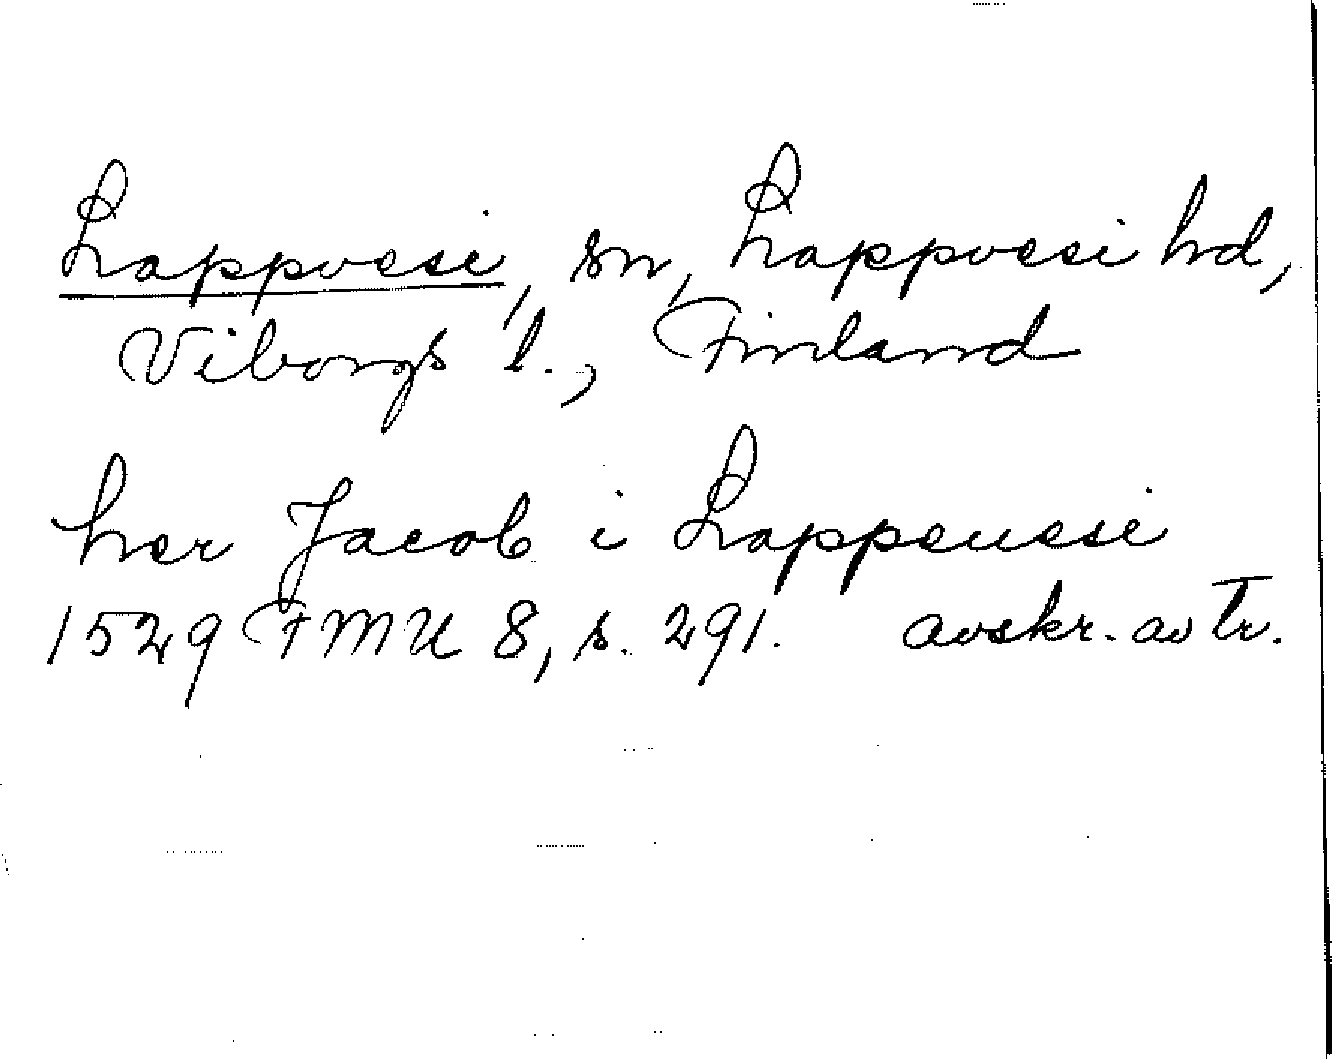 Lappvesi, sn, Lappvesi hd,
Viborgs l., Finland
her Jacob i Lappeuesi
1529 FMU 8, s. 291. avskr. av tr.